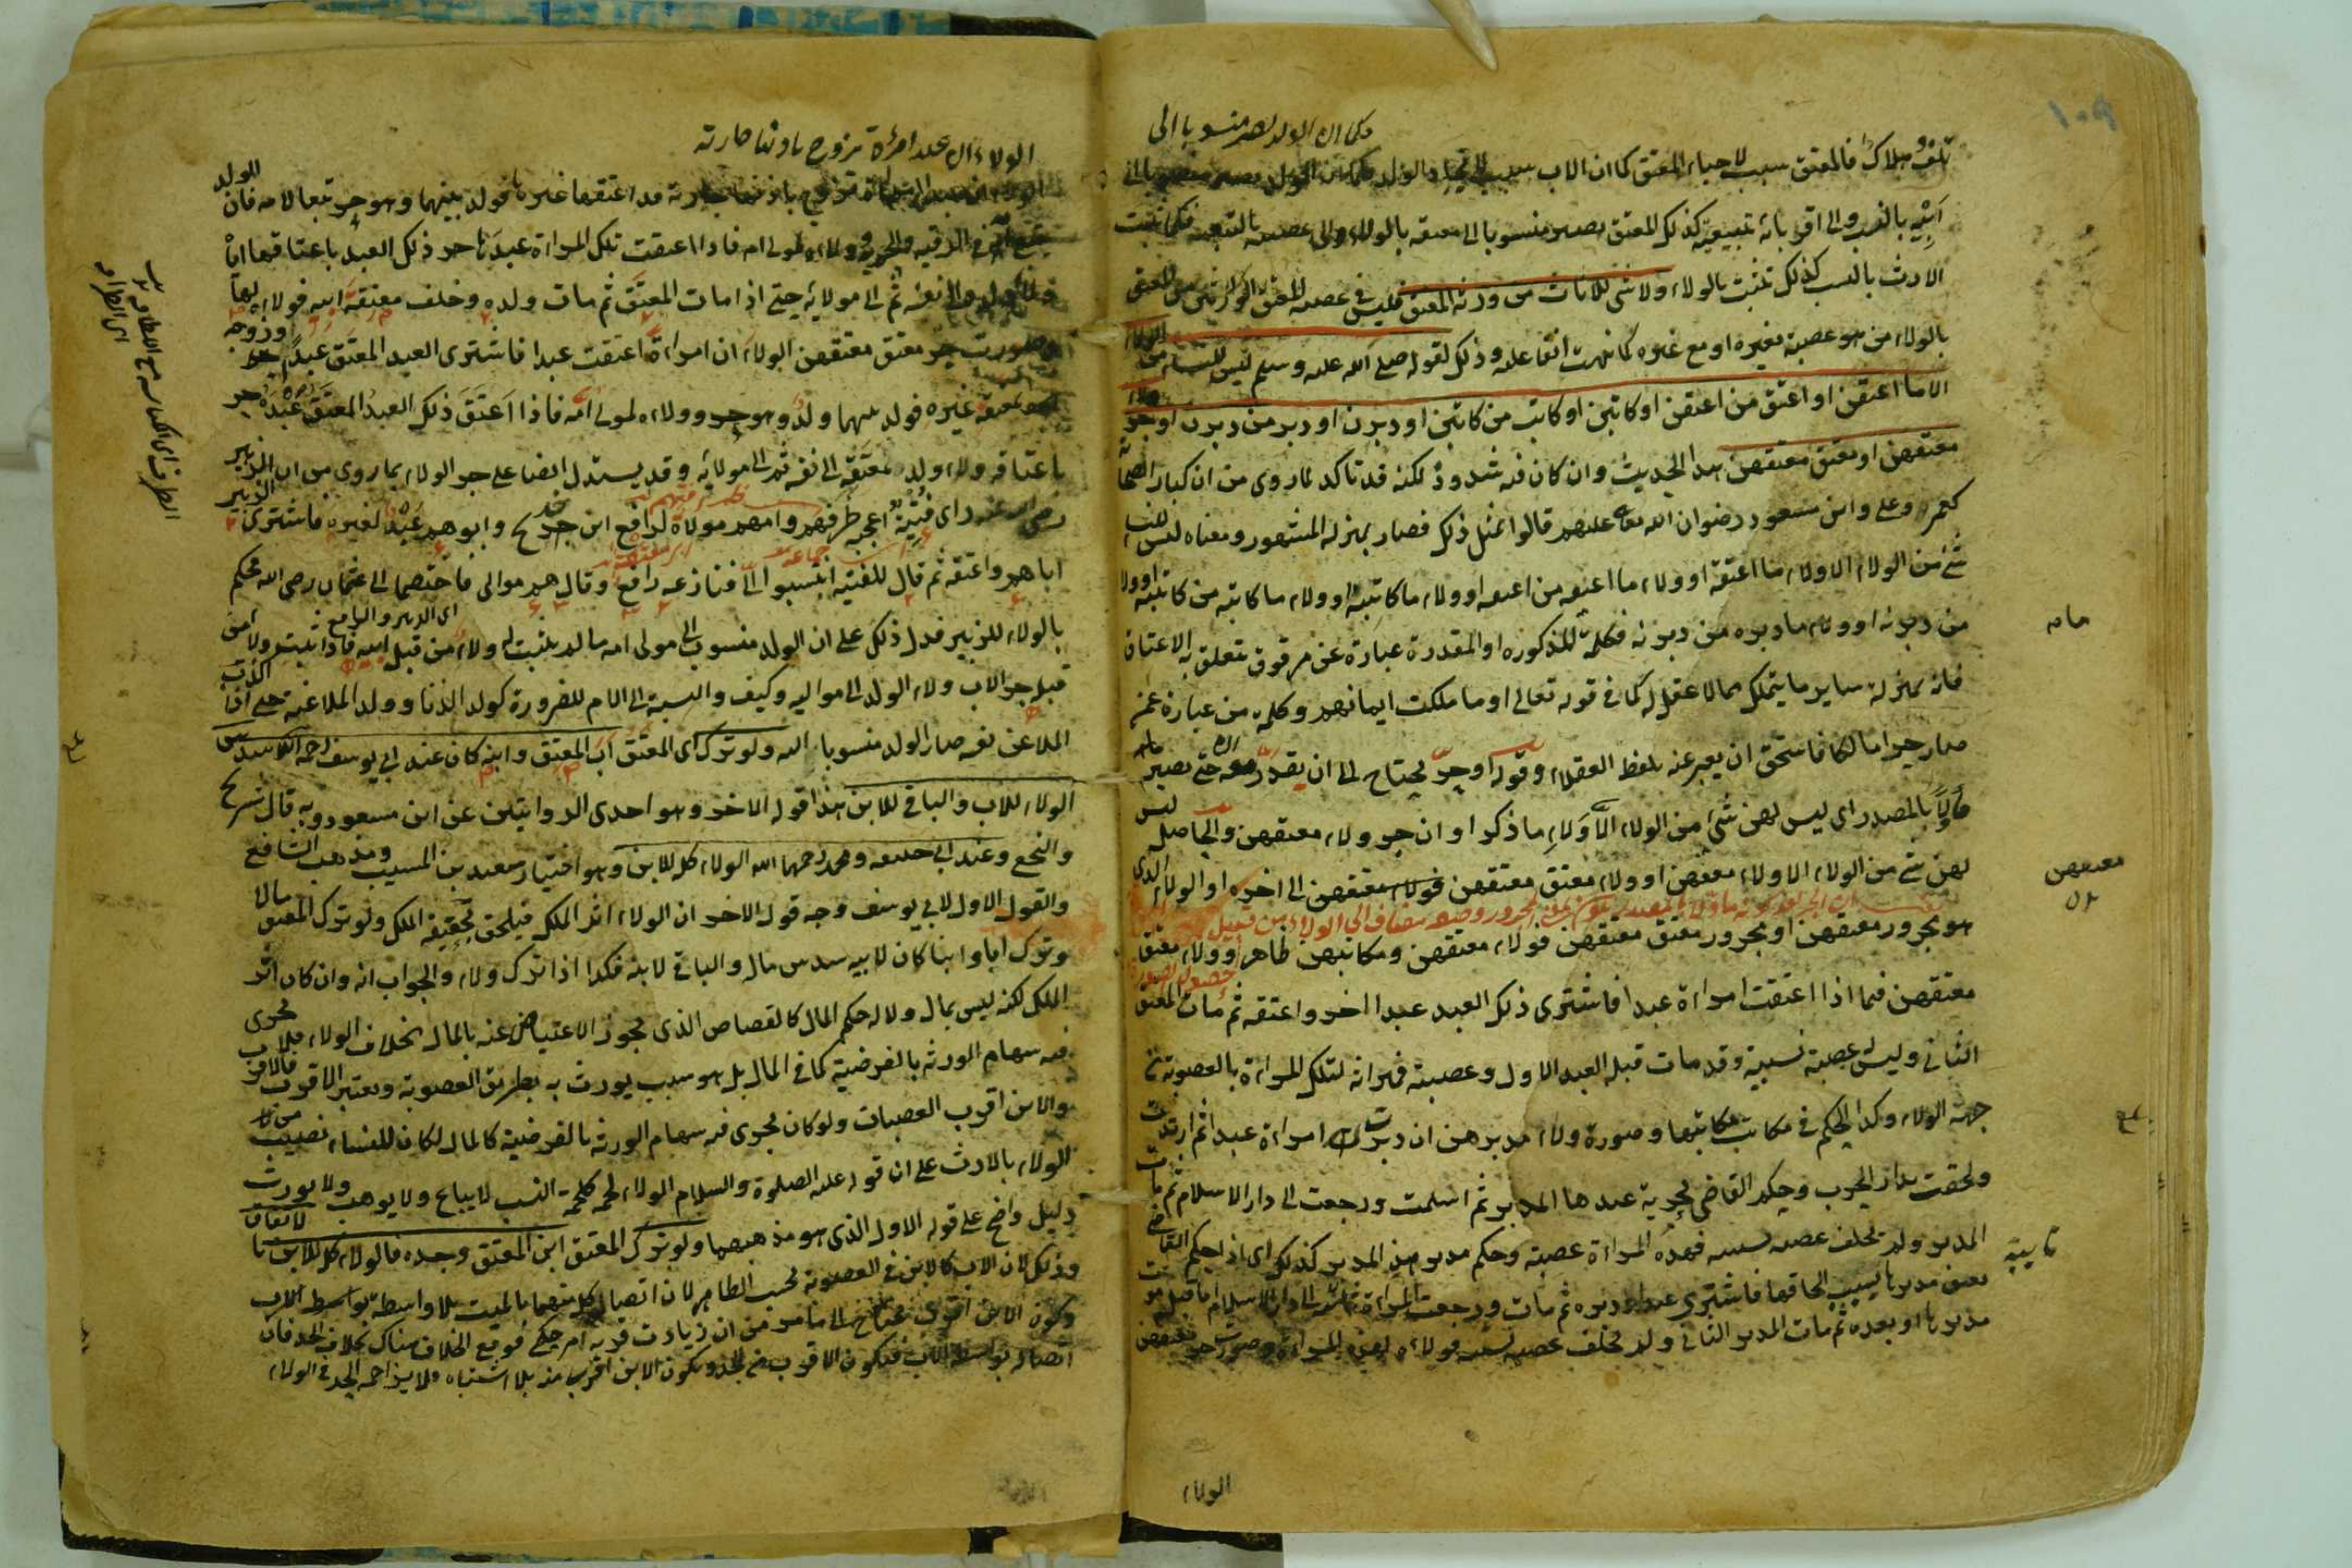 ١٠٩
وكما ان الولد يصير منسوبا الى
تلف وهلاك فالمعتق سبب لاحياء المعتق كما ان الاب سبب لايجاد الولد
ابيه بالنسب والى اقربائه بتبعيته كذلك المعتق يصير منسوبا الى معتقه بالولاء والى عصبته بالتبعية فكما تثبت
الارث بالنسب كذلك تثبت بالولاء ولا شئ للاناث من ورثة المعتق فليس في عصبة المعتق
بالولاء من هو عصبة بغيره او مع غيره كما نبهت انفا عليه وذلك لقوله صلى الله عليه وسلم ليس للنساء من الولاء
الا ما اعتقن او اعتق من اعتقن او كاتبن او كاتب من كاتبن او دبرن او دبر من دبرن او جر ولاء
معتقهن او معتق معتقهن هذا الحديث وان كان فيه شذوذ لكنه قد تاكد لما روى من ان كبار الصحابة
كعمر وعلى وابن مسعود رضوان الله تعالى عليهم قالوا بمثل ذلك فصار بمنزلة المشهور ومعناه ليس للنساء
شئ من الولاء الا ولاء ما اعتقنه او ولاء ما اعتقه من اعتقنه او ولاء ما كاتبنه او ولاء ما كاتبه من كاتبنه او ولاء
من دبرنه او ولاء ما دبره من دبرنه فكلمة ما المذكورة او المقدرة عبارة عن مرقوق يتعلق به الاعتاق
فانه بمنزلة ساير ما يتملك مما لا عقل له كما في قوله تعالى او ما ملكت ايمانهم وكلمة من عبارة عمن
صار حرا مالكا فاستحق ان يعبر عنه بلفظ العقلاء وقوله او جر يحتاج الى ان يقدر معه ان حتى يصير
مأولا بالمصدر اى ليس لهن شئ من الولاء الا ولاء ما ذكر او ان جر ولاء معتقهن والحاصل ليس
لهن شئ من الولاء الا ولاء معتقهن او ولاء معتق معتقهن الى اخره او الولاء الذى
هو مجرور معتقهن او مجرور معتق معتقهن فولاء معتقهن ومكاتبهن ظاهر وولاء معتق
معتقهن فيما اذا اعتقت امراءة عبدا فاشترى ذلك العبد عبدا اخر واعتقه ثم مات المعتق
الثانى وليس له عصبة نسبية وقد مات قبله العبد الاول وعصبته فميراثه لتلك المراءة بالعصوبة من
جهة الولاء وكذا الحكم في مكاتب مكاتبها وصورة ولاء مدبرهن ان دبرت امراءة عبدا ثم ارتدت
ولحقت بدار الحرب وحكم القاضى بحرية عبدها المدبر ثم اسلمت ورجعت الى دار الاسلام ثم مات
المدبر ولم يخلف عصبة نسبية فهذه المراءة عصبة وحكم مدبر هذا المدبر كذلك اى اذا حكم القاضى
بعتق مدبرها بسبب الحاقها فاشترى عبدا ودبره ثم مات ورجعت المراءة الى دار الاسلام اما قبل موت
مدبرها او بعده ثم مات المدبر الثانى ولم يخلف عصبة نسبية فولاءه لهذه المراءة وصورة جر معتقهن
الولاء
معتقهن
ثانية
الولاء ان عبد امرأة تزوج باذنها جارية
قد اعتقها غيرها فولد بينهما وهو حر تبعا لامه فان الولد
يتبع الام في الرقية والحرية وولاءه لمولى امه فاذا اعتقت تلك المراءة عبدها جر ذلك العبد باعتاقها اياه
ولاء ولده الى نفسه ثم الى مولاته حتى اذا مات المعتق ثم مات ولده وخلف معتقة ابيه فولاءه لها
وصورت جر معتق معتقهن الولاء ان امراءة اعتقت عبدا فاشترى العبد المعتق عبدا وزوجه
معتقة غيره فولد بينهما ولد وهو حر وولاءه لمولى امه فاذا اعتق ذلك العبد المعتق عبده جر
باعتاقه ولاء ولد معتقه الى نفسه ثم الى مولاته وقد يستدل ايضا على جر الولاء بما روى من ان الزبير
راى فتية اعجبه ظرفهم وامهم مولاة لرافع ابن خديج وابوهم عبد لغيره فاشترى الزبير
اباهم واعتقه ثم قال للفتية انتسبوا الى فنازعه رافع وقال هم موالى فاختصما الى عثمان رضى الله فحكم
بالولاء للزبير فدل ذلك على ان الولد منسوب الى مولى امه ما لم يثبت له ولاء من قبل ابيه فاذا ثبت ولاء من
قبله جر الاب ولاء الولد الى مواليه وكيف والنسبة الى الام للضرورة كولد الزنا وولد الملاعنة حتى اذا اكذب
الملاعن نفسه صار الولد منسوبا اليه ولو ترك اى المعتق اب المعتق وابنه كان عند ابى يوسف رحمه الله سدس
الولاء للاب والباقى للابن هذا قوله الاخر وهو احدى الروايتين عن ابن مسعود وبه قال شريح
والنخعى وعند ابى حنيفة ومحمد رحمهما الله الولاء كله للابن وهو اختيار سعيد بن المسيب ومذهب الشافعى
والقول الاول لابى يوسف وجه قوله الاخر ان الولاء اثر الملك فيلحق بحقيقة الملك ولو ترك المعتق مالا
وترك ابا وابنا كان لابيه سدس ماله والباقى لابنه فكذا اذا ترك ولاء والجواب انه وان كان اثر
الملك لكنه ليس بمال ولا له حكم المال كالقصاص الذى يجوز الاعتياض عنه بالمال بخلاف الولاء فلا يجرى
فيه سهام الورثة بالفرضية كما في المال بل هو سبب يورث به بطريق العصوبة ويعتبر الاقرب فالاقرب
والابن اقرب العصبات ولو كان يجرى فيه سهام الورثة بالفرضية كالمال لكان للنساء نصيب من
الولاء بالارث على ان قوله عليه الصلوة والسلام الولاء لحمة كلحمة النسب لا يباع ولا يوهب ولا يورث
دليل واضح على قوله الاول الذى هو مذهبهما ولو ترك المعتق ابن المعتق وجده فالولاء كله للابن بالاتفاق
وذلك لان الاب كالابن في العصوبة بحسب الظاهر لان اتصال كل منهما بالميت بلا واسطة
وكون الابن اقرب يحتاج الى ما مر من ان زيادت قربه امر حكمى فوقع الخلاف هناك بخلاف الجد فان
اتصاله بواسطة الاب فيكون الاقرب من الجد ويكون الابن اقرب منه بلا اشتباه ولا يزاحمه الجد في الولاء